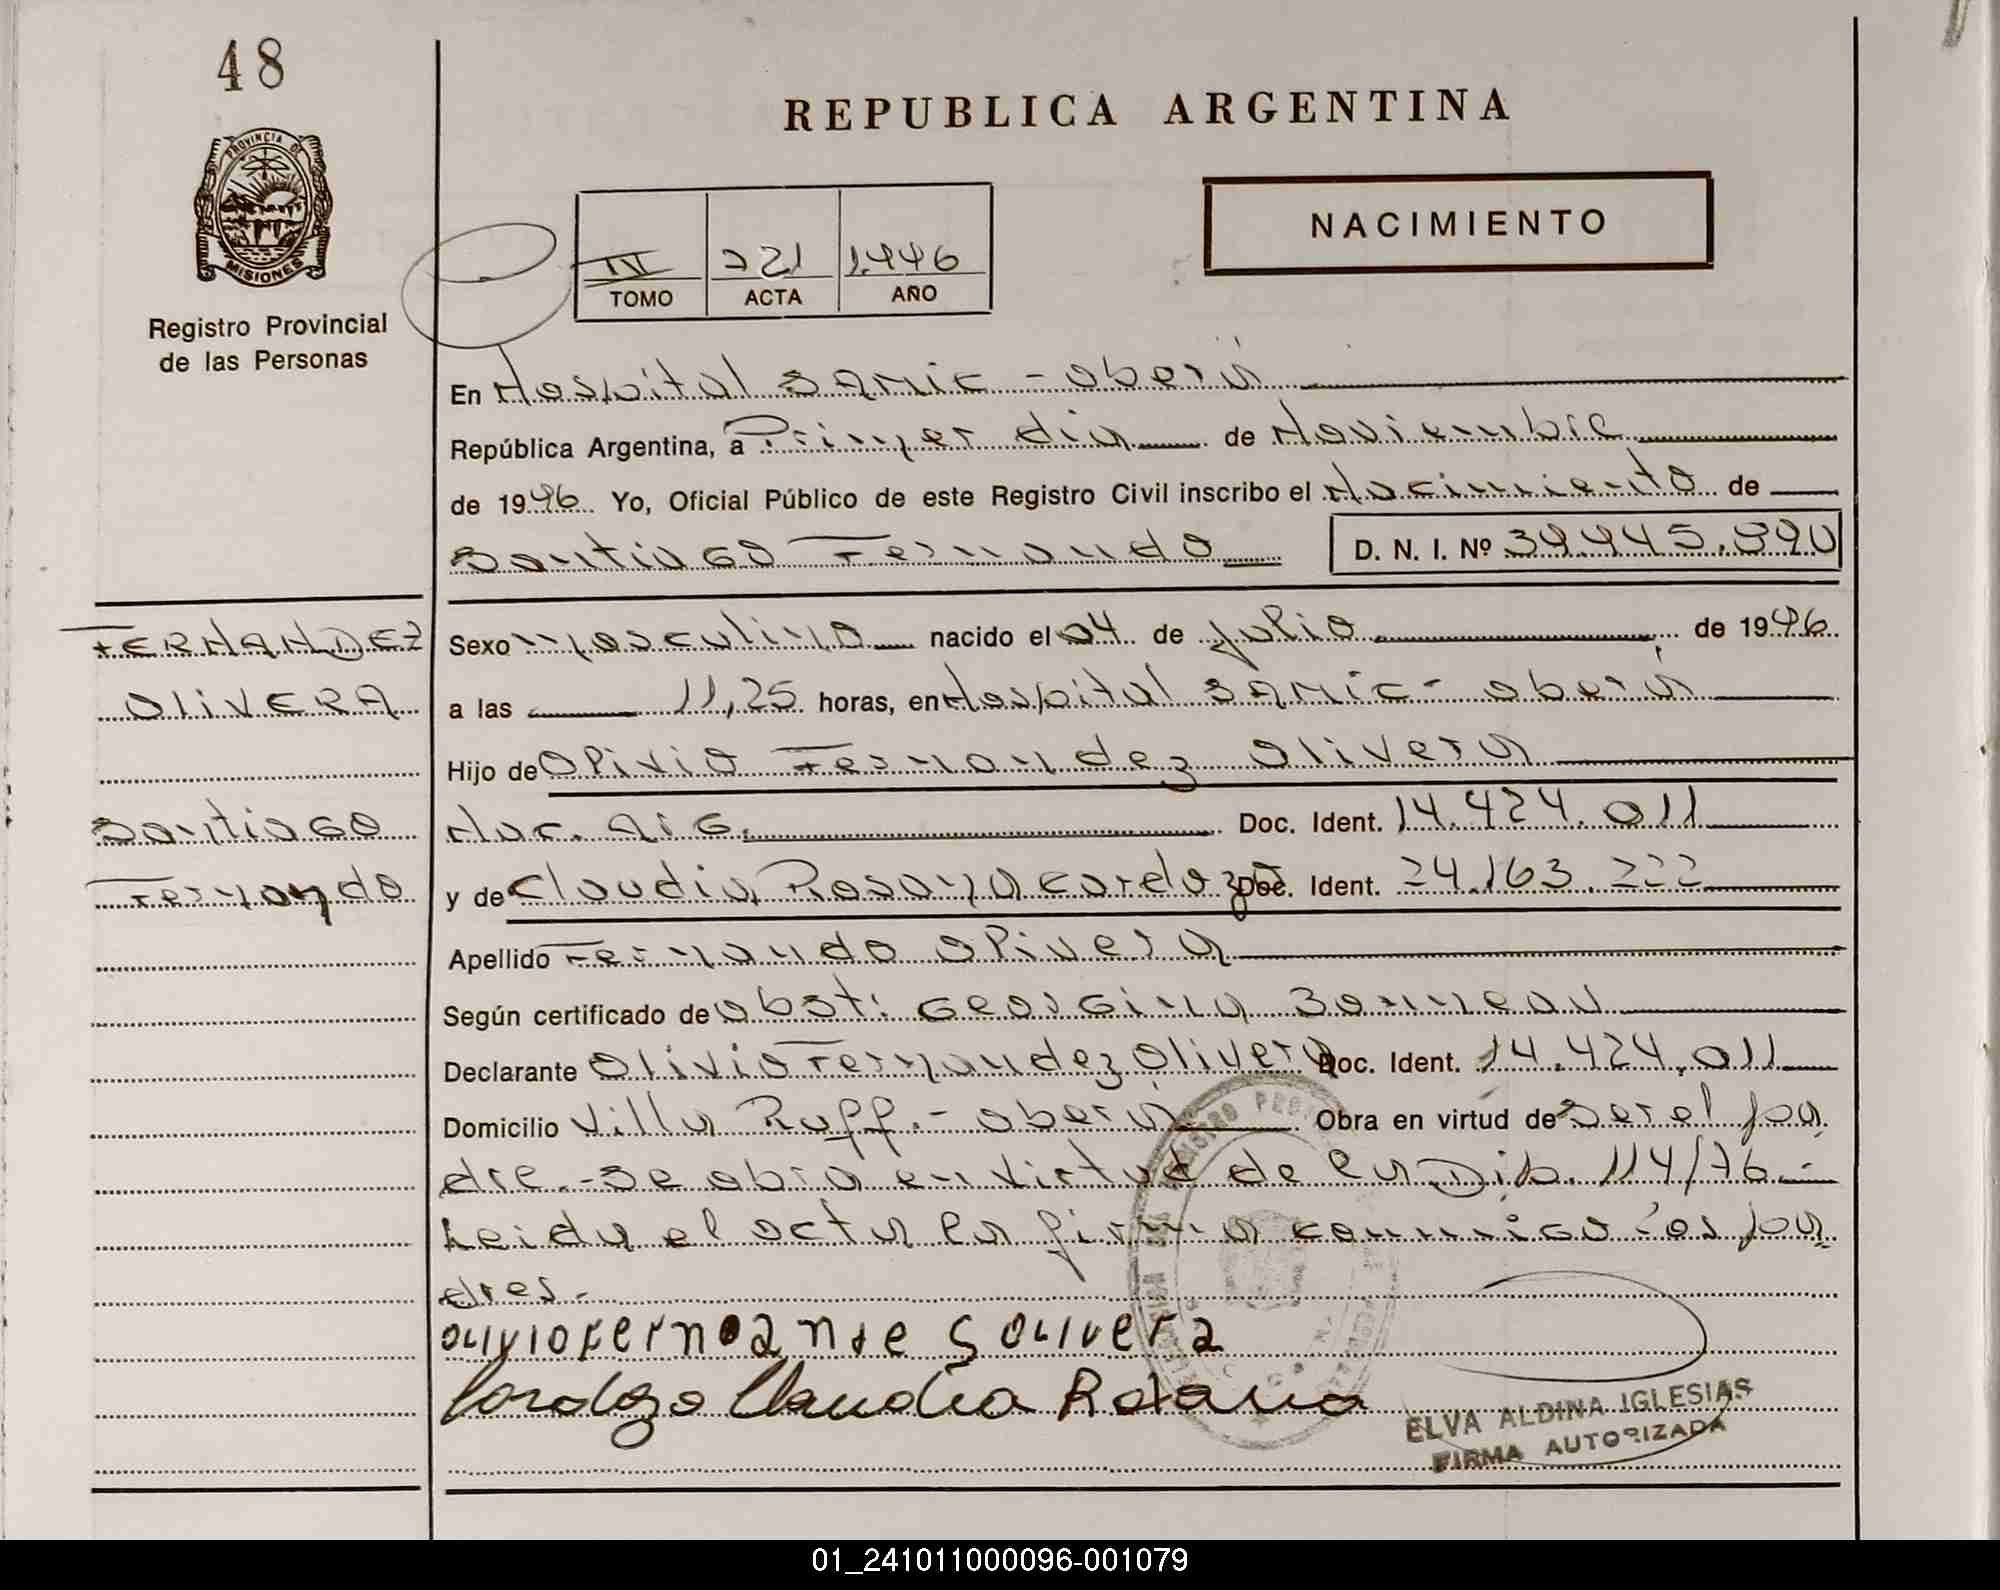 48
REPUBLICA ARGENTINA
PROVINCIA DE
MISIONES
NACIMIENTO
III 721 1.996
TOMO ACTA AÑO
Registro Provincial
de las Personas
En Hospital SAMIC - oberá
República Argentina, a Primer dia de Noviembre
de 1996 Yo, Oficial Público de este Registro Civil inscribo el Nacimiento de
Santiago Fernando D. N. I. Nº 39.945.890
FERNANDEZ
OLIVERA
Santiago
Fernando
Sexo masculino nacido el 04 de julio de 1996
a las 11,25 horas, en Hospital SAMIC - oberá
Hijo de Olivio Fernandez Olivera
Nac. Arg. Doc. Ident. 14.424.011
y de Claudia Rosana Cardozo Doc. Ident. 24.163.222
Apellido Fernando Olivera
Según certificado de obst: Georgina
Declarante Olivio Fernandez Olivera Doc. Ident. 14.424.011
Domicilio Villa Ruff. - oberá Obra en virtud de ser el pa
dre.- Se obra en virtud de la Disp. 114/76.-
Leida el acta la firma conmigo los pa
dres.-
OLIVIO FERNANDES OLIVERA
Cardozo Claudia Rosana
ELVA ALDINA IGLESIAS
FIRMA AUTORIZADA
01_241011000096-001079